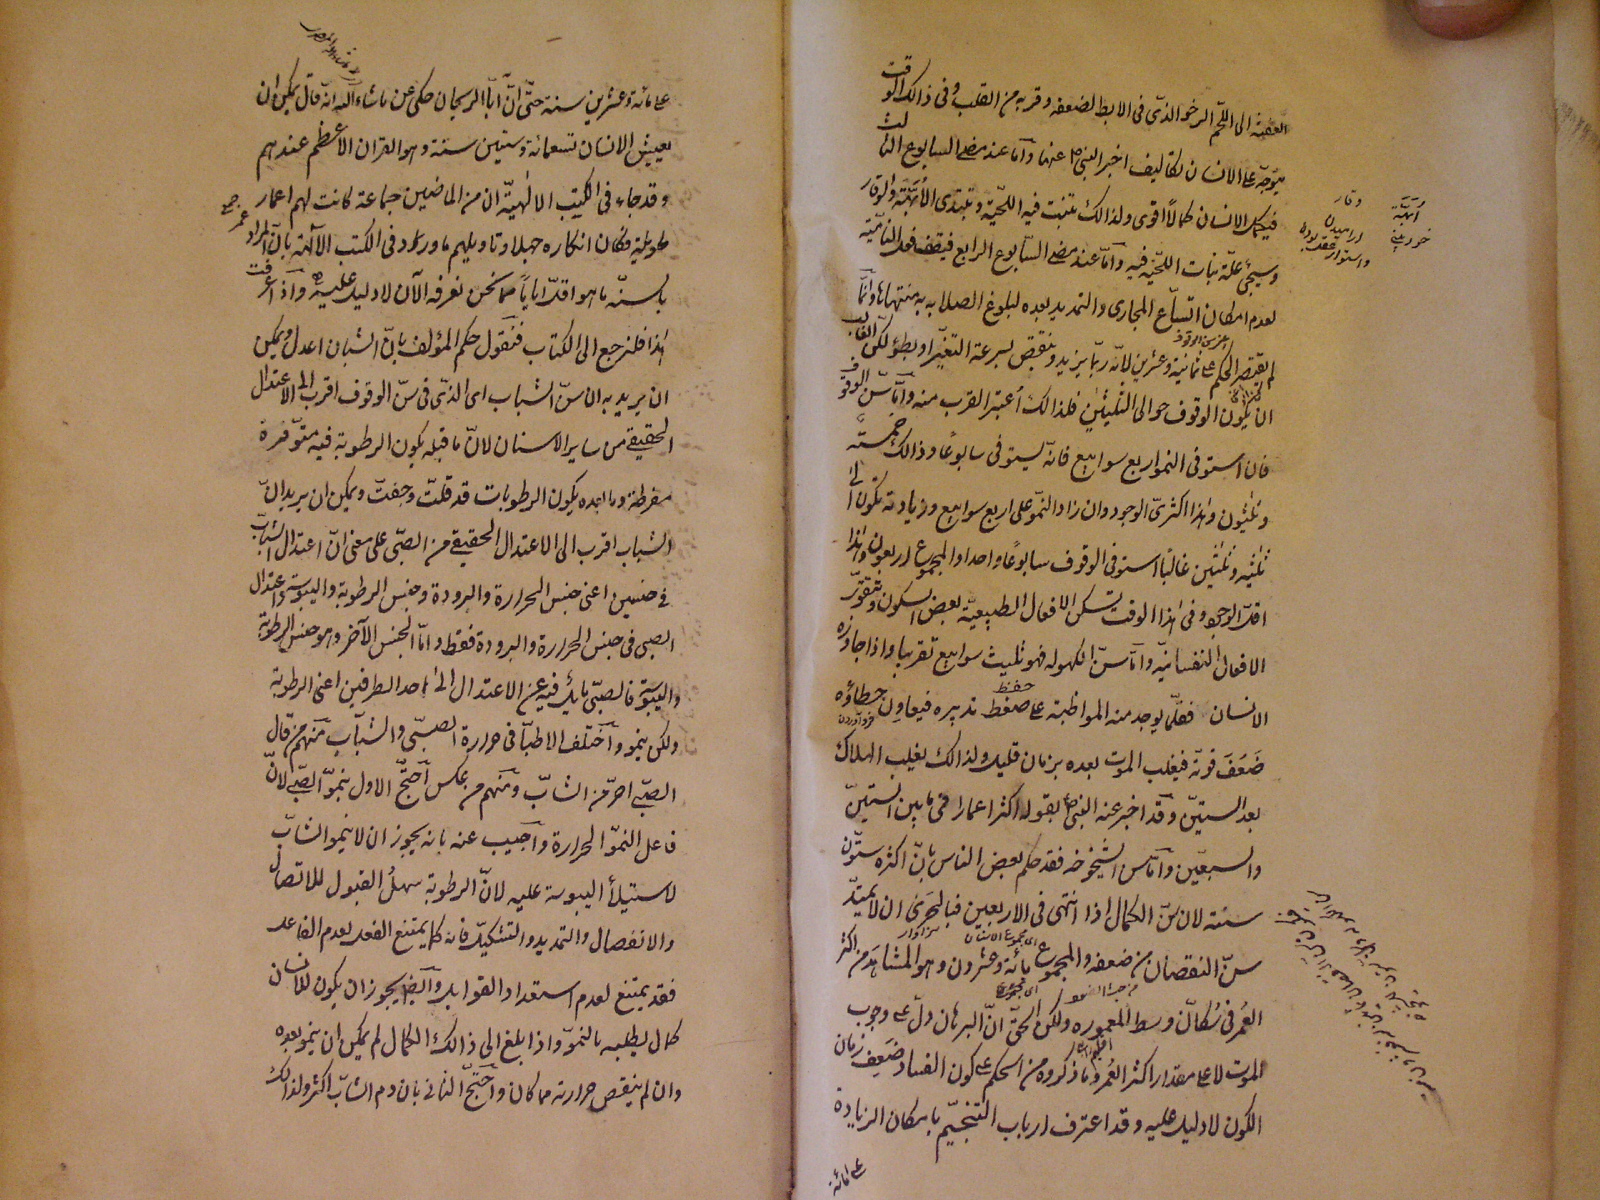 العفنة الى اللحم الرخو الذى فى الابط لضعفه وقربه من القلب وفى ذالك الوقت
يتوجه على الانسان تكاليف اخبر النبى عنها وامّا عند مضى السابوع الثالث
فيكمل الانسان كمالا اقوى ولذالك تنبت فيه اللحية وتبتدى الأبهة والوقار
وسيجئ علة نبات اللحية فيه وامّا عند مضى السابوع الرابع فيقف فعل النامية
لعدم امكان اتساع المجارى والتمديد بعده لبلوغ الصلابه منتهاها وانّما
لم يقتصر الحكم على ثمانية وعشرين لانّه ربّما يزيد وينقص لسرعة التغير او بطؤ لكن الغالب
ان يكون الوقوف حوالى الثلثين فلذالك اعتبر القرب منه وامّا سنّ الوقوف
فان استوفى النمو اربع سوابيع فانه يستوفى سابوعا وذالك خمسة
وثلثون وهذا اكثرى الوجود وان زاد النمو على اربع سوابيع وزيادته تكون الى
ثلثه وثلثين غالبا استوفى الوقوف سابوعا واحدا والمجموع اربعون وهذا
اقل الوجود وفى هذا الوقت تسكن الافعال الطبيعية بعض السكون وتتقوى
الافعال النفسانيه وامّا سنّ الكهوله فهو ثليث سوابيع تقريبا واذا جاوزه
الانسان فقلّما يوجد منه المواظبة على حفظ تدبيره فيعاون خطاؤه
ضعف قوته فيغلب الموت بعده بزمان قليل ولذالك يغلب الهلاك
بعد الستين وقد اخبر عنه النبى بقوله اكثر اعمار امتى ما بين الستين
والسبعين وامّا سن الشيخوخه فقد حكم بعض الناس بانّ اكثره ستّون
سنة لان سنّ الكمال اذا انتهى فى الاربعين فبالحرى ان لا يمتدّ
سنّ النقصان من ضعفه والمجموع مائة وعشرون وهو المشاهد من اكثر
العمر فى سكان وسط المعموره ولكن الحقّ انّ البرهان دلّ على وجوب
الموت لا على مقدار اكثر العمر وما ذكروه من الحكم على كون الفساد ضعف زمان
الكون لا دليل عليه وقد اعترف ارباب التنجيم بامكان الزيادة
على مائة
على مائة وعشرين سنة حتّى انّ ابا الريحان حكى عن ماشاء الله انّه قال يمكن ان
يعيش الانسان تسعمائة وستين سنة وهو القران الاعظم عندهم
وقد جاء فى الكتب الالهيّة ان من الماضين جماعة كانت لهم اعمار
طويلة فكان انكاره جهلا وتاويلهم ما ورد فى الكتب الآلهة بانّ المراد
بالسنّه ما هو اقلّ اياما مما نحن نعرفه الآن لا دليل عليه واذا عرفت
هذا فلنرجع الى الكتاب فنقول حكم المؤلف بانّ الشبان اعدل ويمكن
ان يريد به ان سنّ الشباب اى الذى فى سنّ الوقوف اقرب الى الاعتدال
الحقيقى من ساير الاسنان لانّ ما قبله يكون الرطوبة فيه متوفرة
مفرطة وما بعده يكون الرطوبات قد قلّت وجفت ويمكن ان يريد انّ
الشباب اقرب الى الاعتدال الحقيقى من الصبى على معنى انّ اعتدال الشباب
فى جنسين اعنى جنس الحرارة والبرودة وجنس الرطوبة واليبوسة واعتدال
الصبى فى جنس الحرارة والبرودة فقط وامّا الجنس الآخر وهو جنس الرطوبة
واليبوسة فالصبى مايل فيه عن الاعتدال الى احد الطرفين اعنى الرطوبة
ولكن ينمو واختلف الاطبّا فى حرارة الصبى والشباب منهم من قال
الصبى احرّ من الشابّ ومنهم من عكس احتجّ الاول بنموّ الصبى لانّ
فاعل النموّ الحرارة واجيب عنه بانه يجوز ان لا ينمو الشابّ
لاستيلأ اليبوسة عليه لانّ الرطوبة سهلُ القبول للاتصال
والانفصال والتمديد والتشكيل فانه كما يمتنع الفعل لعدم الفاعل
فقد يمتنع لعدم استعداد القوابل وايضا يجوز ان يكون للانسان
كمال يطلبه بالنموّ واذا بلغ الى ذالك الكمال لم يمكن ان ينمو بعده
وان لم ينقص حرارته مما كان واحتجّ الثانى بان دم الشابّ اكثر ولذالك